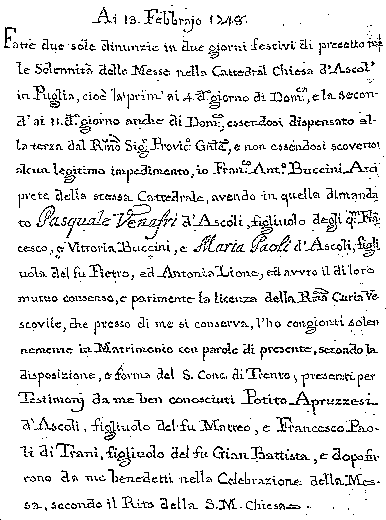 Ai 13. Febbrajo 1748.
Fatte due sole dinunzie in due giorni festivi di precetto
le Solennità delle Messe nella Cattedral Chiesa d'Ascoli
in Puglia, cioè la prim' ai 4. d.° giorno di Dom.ca, e la secon-
d' ai 11. d.° giorno anche di Dom.ca, essendosi dispensato al-
la terza dal R.mo Sig.r Provic.° Gn̄le, e non essendosi scoverto
alcun legitimo impedimento, io Fran.co Ant.° Buccini Arci
prete della stessa Cattedrale, avendo in quella dimanda
to Pasquale Venafri d'Ascoli, figliuolo degli q.m Fra̅
cesco, e Vittoria Buccini, e Maria Paoli d'Ascoli, figli
uola del fu Pietro, ed Antonia Lione, ed avuto il di loro
mutuo consenso, e parimente la licenza della R.ma Curia Ve-
scovile, che presso di me si conserva, l'ho congionti solen
nemente in Matrimonio con parole di presente, secondo la
disposizione, e forma del S. Conc. di Trento, presenti per
Testimonj da me ben conosciuti Potito Apruzzesi
d'Ascoli, figliuolo del fu Matteo, e Francesco Pao-
li di Trani, figliuolo del fu Gian Battista, e dopo fu
rono da me benedetti nella Celebrazione della Mes-
sa, secondo il Rito della S. M. Chiesa